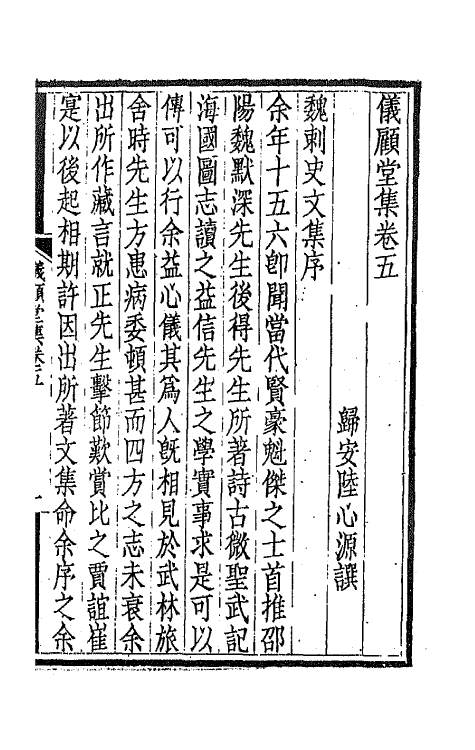 儀顧堂集卷五
歸安陸心源譔
魏刺史文集序
余年十五六卽聞當代賢豪魁傑之士首推邵
陽魏默深先生後得先生所著詩古微聖武記
海國圖志讀之益信先生之學實事求是可以
傳可以行余益心儀其爲人旣相見於武林旅
舍時先生方患病委頓甚而四方之志未衰余
出所作藏言就正先生擊節歎賞比之賈誼崔
寔以後起相期許因出所著文集命余序之余
儀顧堂集卷五
一